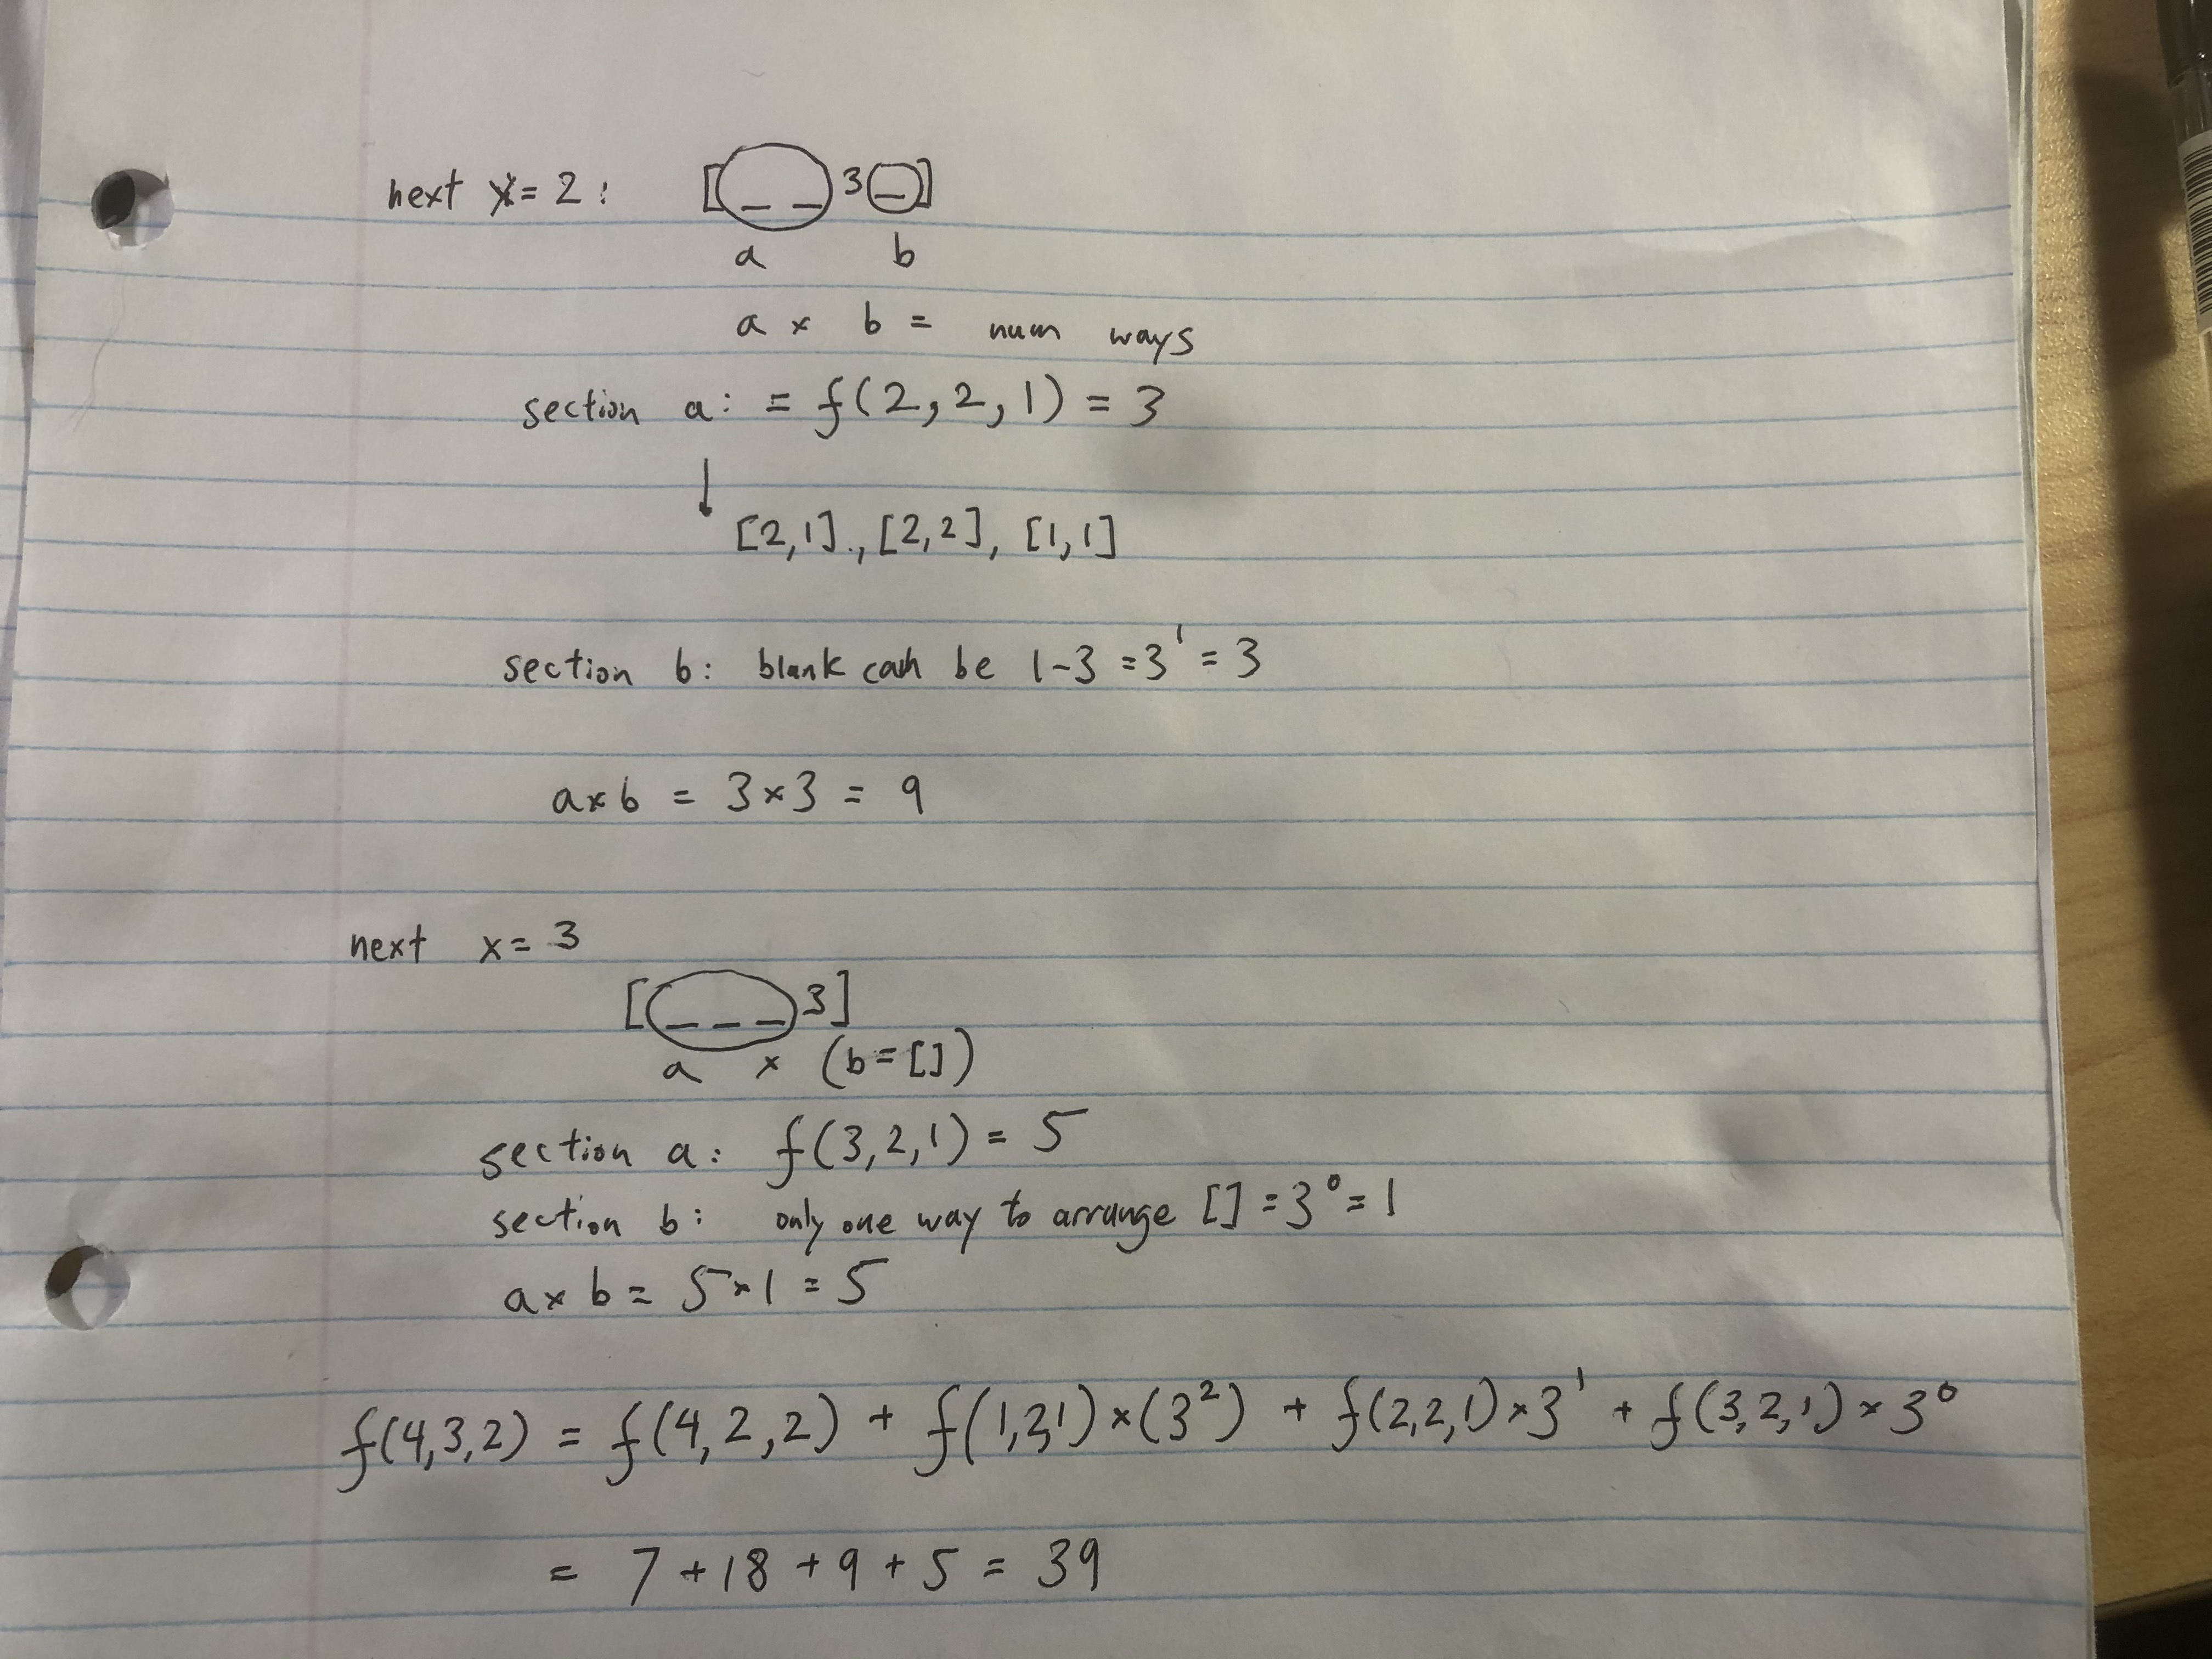 next x=2: [_ _ 3 _]
a b
a x b = num ways
section a: = f(2,2,1) = 3
↓
[2,1], [2,2], [1,1]
section b: blank can be 1-3 = 3¹ = 3
a x b = 3 x 3 = 9
next x = 3
[_ _ _ 3]
a x (b=[])
section a: f(3,2,1) = 5
section b: only one way to arrange [] = 3⁰ = 1
a x b = 5 x 1 = 5
f(4,3,2) = f(4,2,2) + f(1,2,1) x (3²) + f(2,2,1) x 3¹ + f(3,2,1) x 3⁰
= 7 + 18 + 9 + 5 = 39